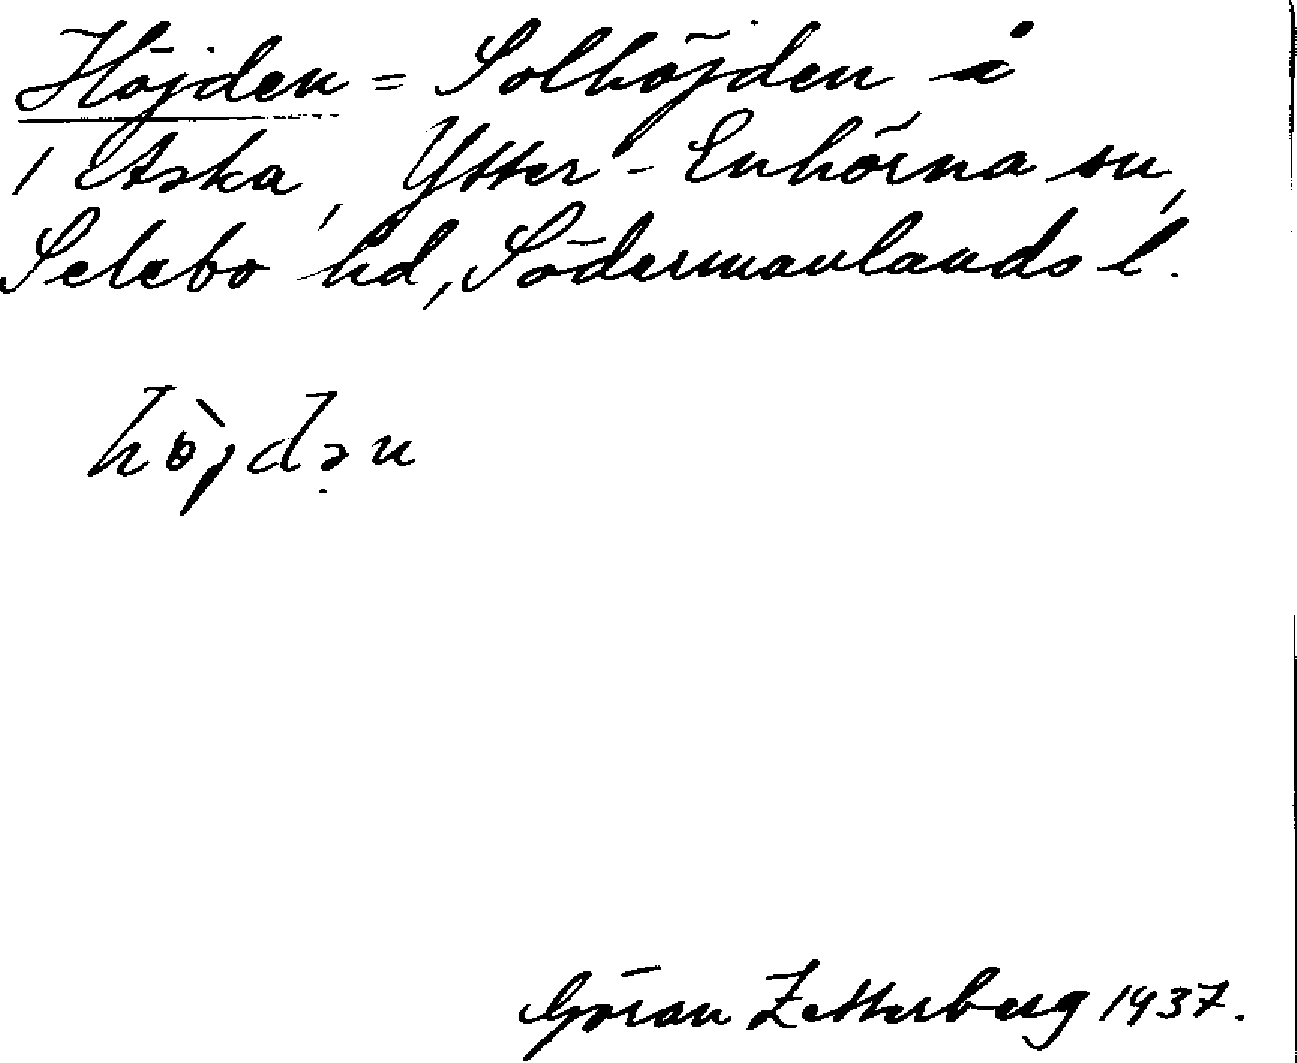 Höjden = Solhöjden å
1 Ekska, Ytter-Enhörna sn,
Selebo hd, Södermanlands l.
hö̀jdən
Göran Zetterberg 1937.